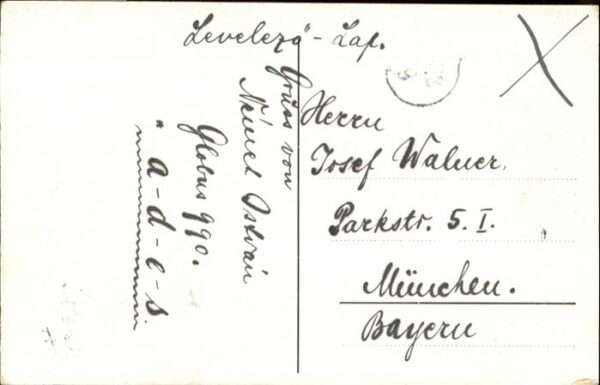 Levelező-Lap.
Gruss von
Német István
Globus 990.
" a-d-e-s
Herrn
Josef Walner.
Parkstr. 5. I.
München.
Bayern